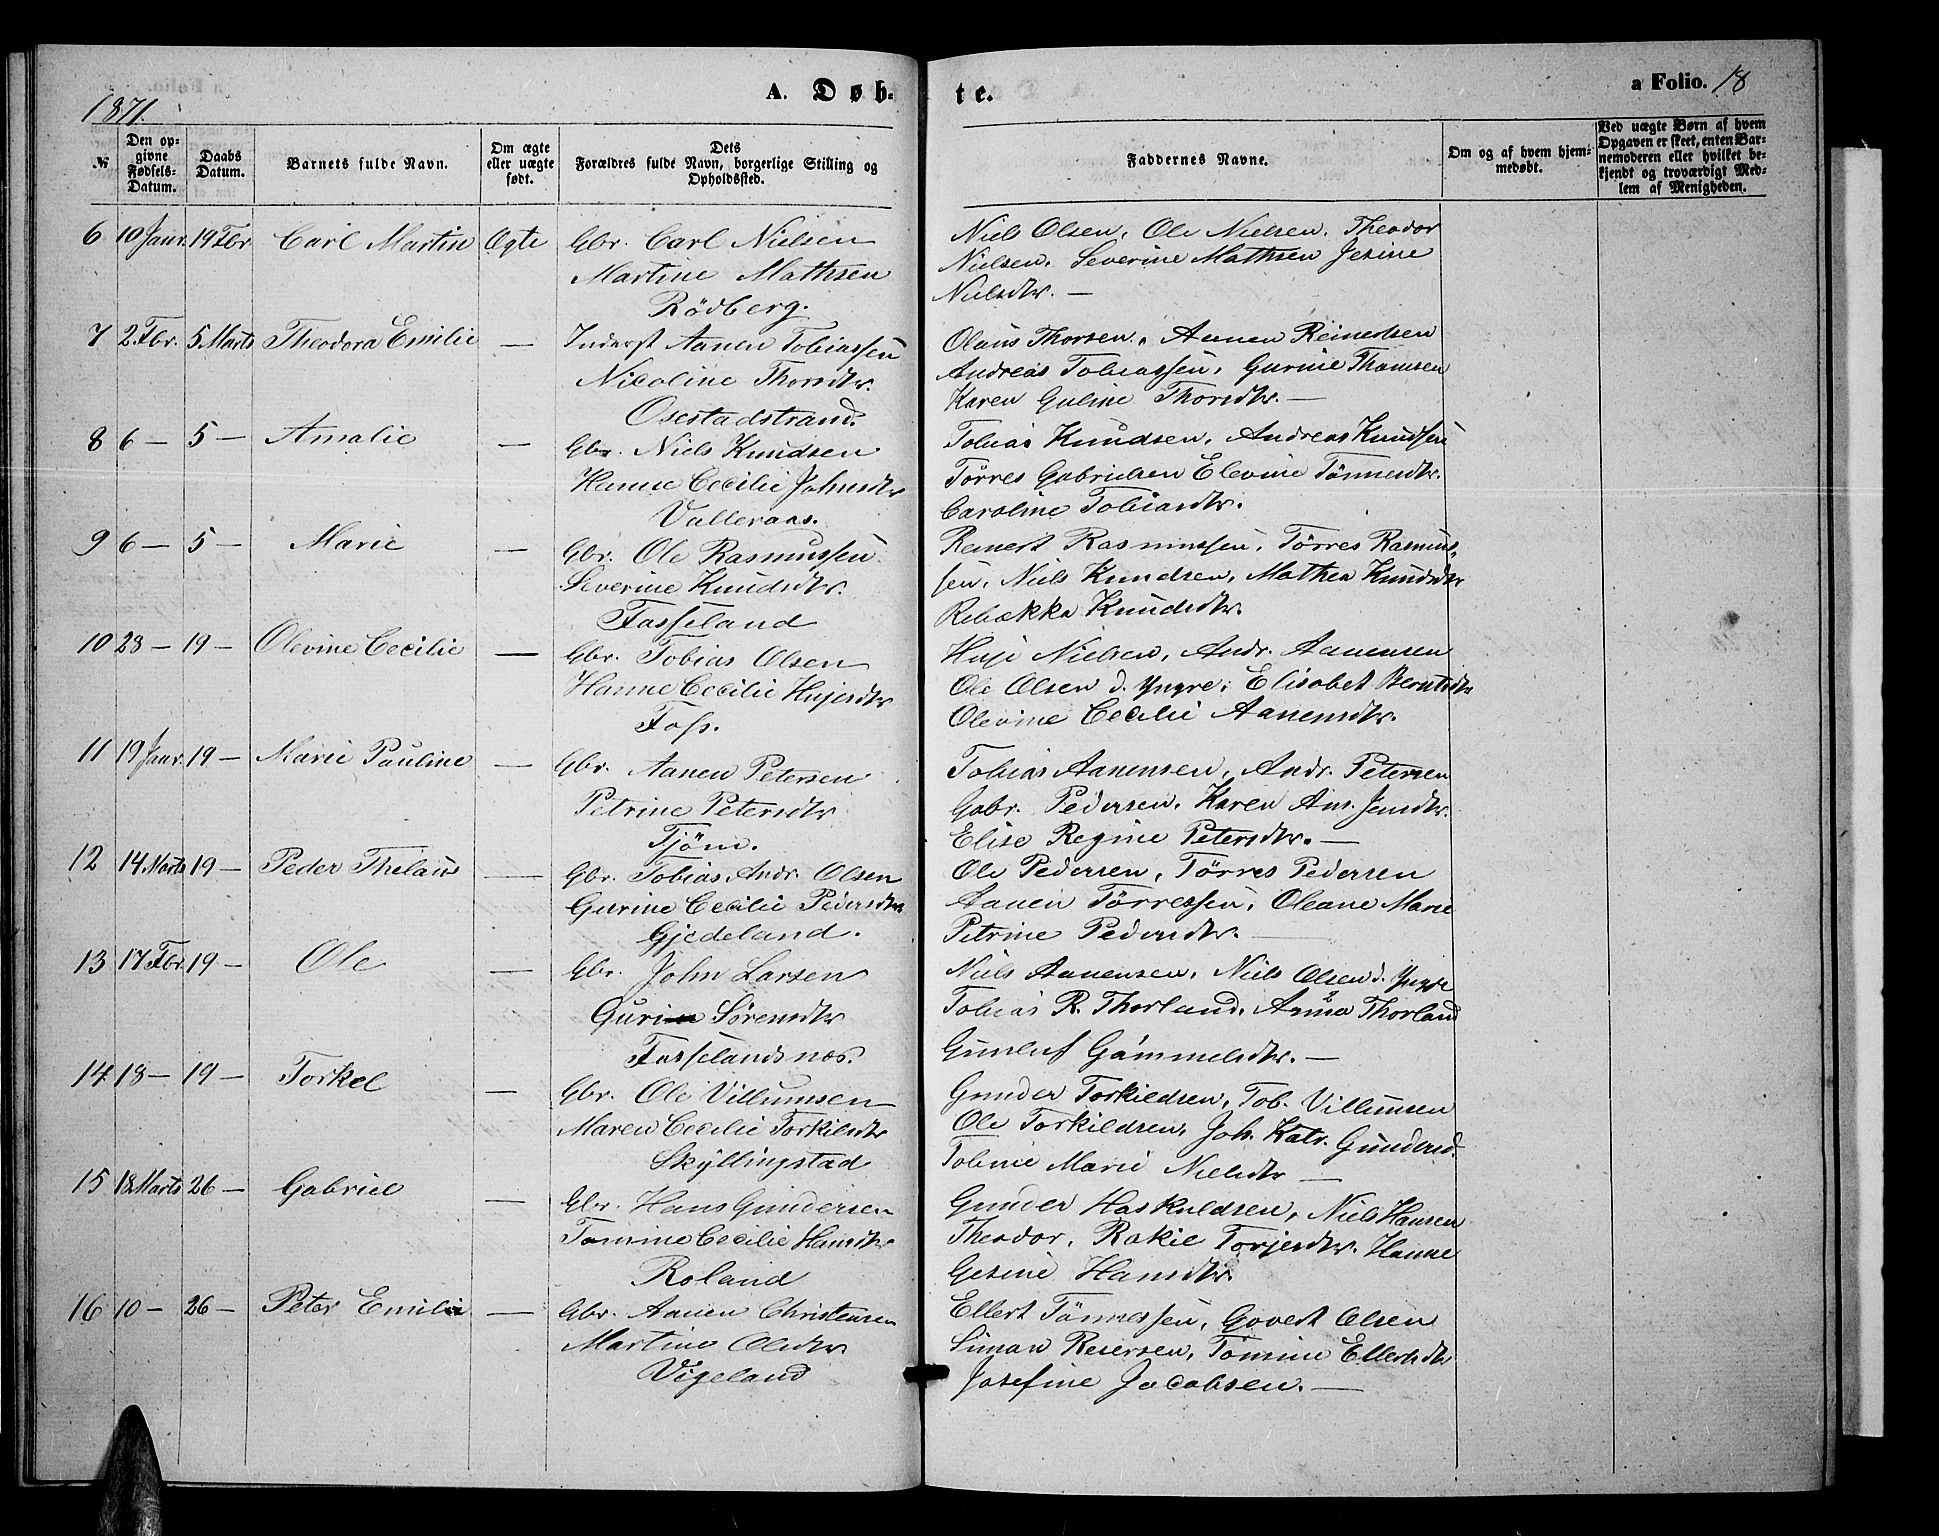 1871.
A. Døb-
te.
a Folio. 18
№
Den op-
givne
Fødsels-
Datum.
Daabs
Datum.
Barnets fulde Navn.
Om ægte
eller uægte
født.
Dets
Forældres fulde Navn, borgerlige Stilling og
Opholdssted.
Faddernes Navne.
Om og af hvem hjem-
medøbt.
Ved uægte Børn af hvem
Opgaven er skeet, enten Bar-
nemoderen eller hvilket be-
kjendt og troværdigt Med-
lem af Menigheden.
6 10 Janr. 19 Fbr. Carl Martin Ægte Gbr. Carl Nielsen
Martine Mathsen
Rödberg.
Niels Olsen, Ole Nielsen, Theodor
Nielsen, Severine Mathsen Jesine
Nielsdtr. —
7 2. Fbr. 5 Marts Theodora Emilie — Inderst Aanen Tobiassen
Nicoline Thorsdtr.
Osestadstrand.
Olaus Thorsen, Aanen Reinertsen
Andreas Tobiassen, Gurine Thomsen
Karen Guline Thorsdtr. —
8 6 — 5 — Amalie — Gbr. Niels Knudsen
Hanne Cecilie Johnsdtr
Valleraas.
Tobias Knudsen, Andreas Knudsen
Tørres Gabrielsen Elevine Tönnesdtr.
Caroline Tobiasdtr.
9 6 — 5 — Marie — Gbr. Ole Rasmussen
Severine Knudsdtr.
Fasseland
Reinert Rasmussen, Tørres Rasmus-
sen, Niels Knudsen, Mathea Knudsdtr
Rebækka Knudsdtr.
10 28 — 19 — Olevine Cecilie — Gbr. Tobias Olsen
Hanne Cecilie Hujesdtr
Foss.
Huje Nielsen, Andr. Aanensen
Ole Olsen d. Yngre, Elisabet Berntsdtr
Olevine Cecilie Aanensdtr.
11 19 Janr. 19 — Marie Pauline — Gbr. Aanen Petersen
Petrine Petersdtr
Tjöm.
Tobias Aanensen, Andr. Petersen
Gabr. Pedersen, Karen An. Jensdtr.
Elise Regine Petersdtr. —
12 14 Marts 19 — Peder Thilaus — Gbr. Tobias Andr. Olsen
Gurine Cecilie Pedersdtr
Gjedeland.
Ole Pedersen, Tørres Pedersen
Aanen Tørressen, Oleane Marie
Petrine Pedersdtr. —
13 17 Fbr. 19 — Ole — Gbr. John Larsen
Guri Sørensdtr
Fasselandsnæs.
Niels Aanensen, Niels Olsen d. Yngre
Tobias R. Thorland, Anna Thorland
Gunluf Gammelsdtr. —
14 18 — 19 — Torkel — Gbr. Ole Villumsen
Maren Cecilie Torkilsdtr
Skyllingstad
Gunder Torkildsen, Tob. Villumsen
Ole Torkildsen, Joh. Katr. Gundersd.
Tobine Marie Nielsdtr —
15 18 Marts 26 — Gabriel — Gbr. Hans Gundersen
Tomine Cecilie Hansdtr
Roland
Gunder Haskuldsen, Niels Hansen
Theodor, Rakie Torjesdtr. Hanne
Gesine Hansdtr.
16 10 — 26 — Peter Emil — Gbr. Aanen Christensen
Martine Olsdtr.
Vigeland
Ellert Tönnessen, Govert Olsen
Siman Reiersen, Tomine Ellertsdtr
Josefine Jacobsen. —